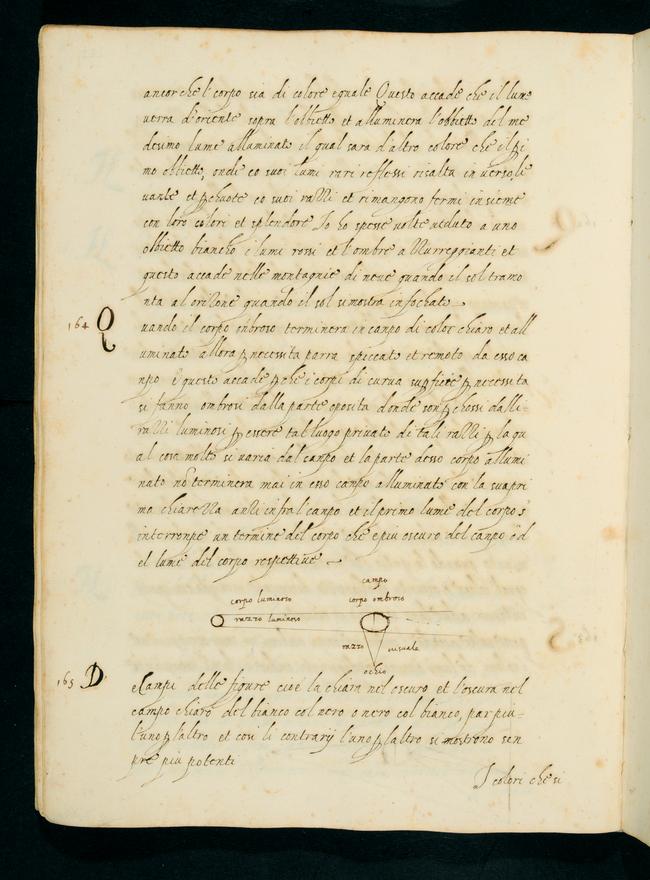 ancor che'l corpo sia di colore eguale Questo accade che il lume
uerra d'oriente sopra l'obbietto et alluminera l'obbietto del me
desimo lume alluminato il qual sara d'altro colore che il pi
mo obbietto, onde co suoi lumi rari reflessi risalta in uerso le
uante et ꝑcuote co suoi razzi et rimangono fermi insieme
con loro colori et splendore Io ho spesse uolte ueduto a uno
obbietto biancho i lumi rossi et l'ombre azzurreggianti et
questo accade nelle montagnie di neue quando il sol tramo
nta al orizone quando il sol si mostra infochato
164 Q
uando il corpo onbroso terminera in canpo di color chiaro et all
uminato allora ꝑ necessita parra spiccato et remoto da esso ca
npo e questo accade ꝑche i corpi di curua supficie ꝑ necessita
si fanno ombrosi dalla parte oposita donde son ꝑchossi dalli
razzi luminosi ꝑ essere tal luogo priuato di tali razzi ꝑ la qu
al cosa molto si uaria dal canpo et la parte desso corpo allumi
nato nõ terminera mai in esso canpo alluminato con la sua pri
ma chiarezza anzi infral canpo et il primo lume del corpo s
interronpe un termine del corpo che e piu oscuro del canpo o d
el lume del corpo respettiue
campo
corpo luminoso corpo ombroso
razzo luminoso
razzo uisuale
ochio
165 D
e Campi delle figure cioè la chiara nel oscuro et l'oscura nel
campo chiaro del bianco col nero o nero col bianco, par piu
l'uno ꝑ l'altro et cosi li contrarij l'uno ꝑ l'altro si mostrono sen
pre piu potenti
I colori che si